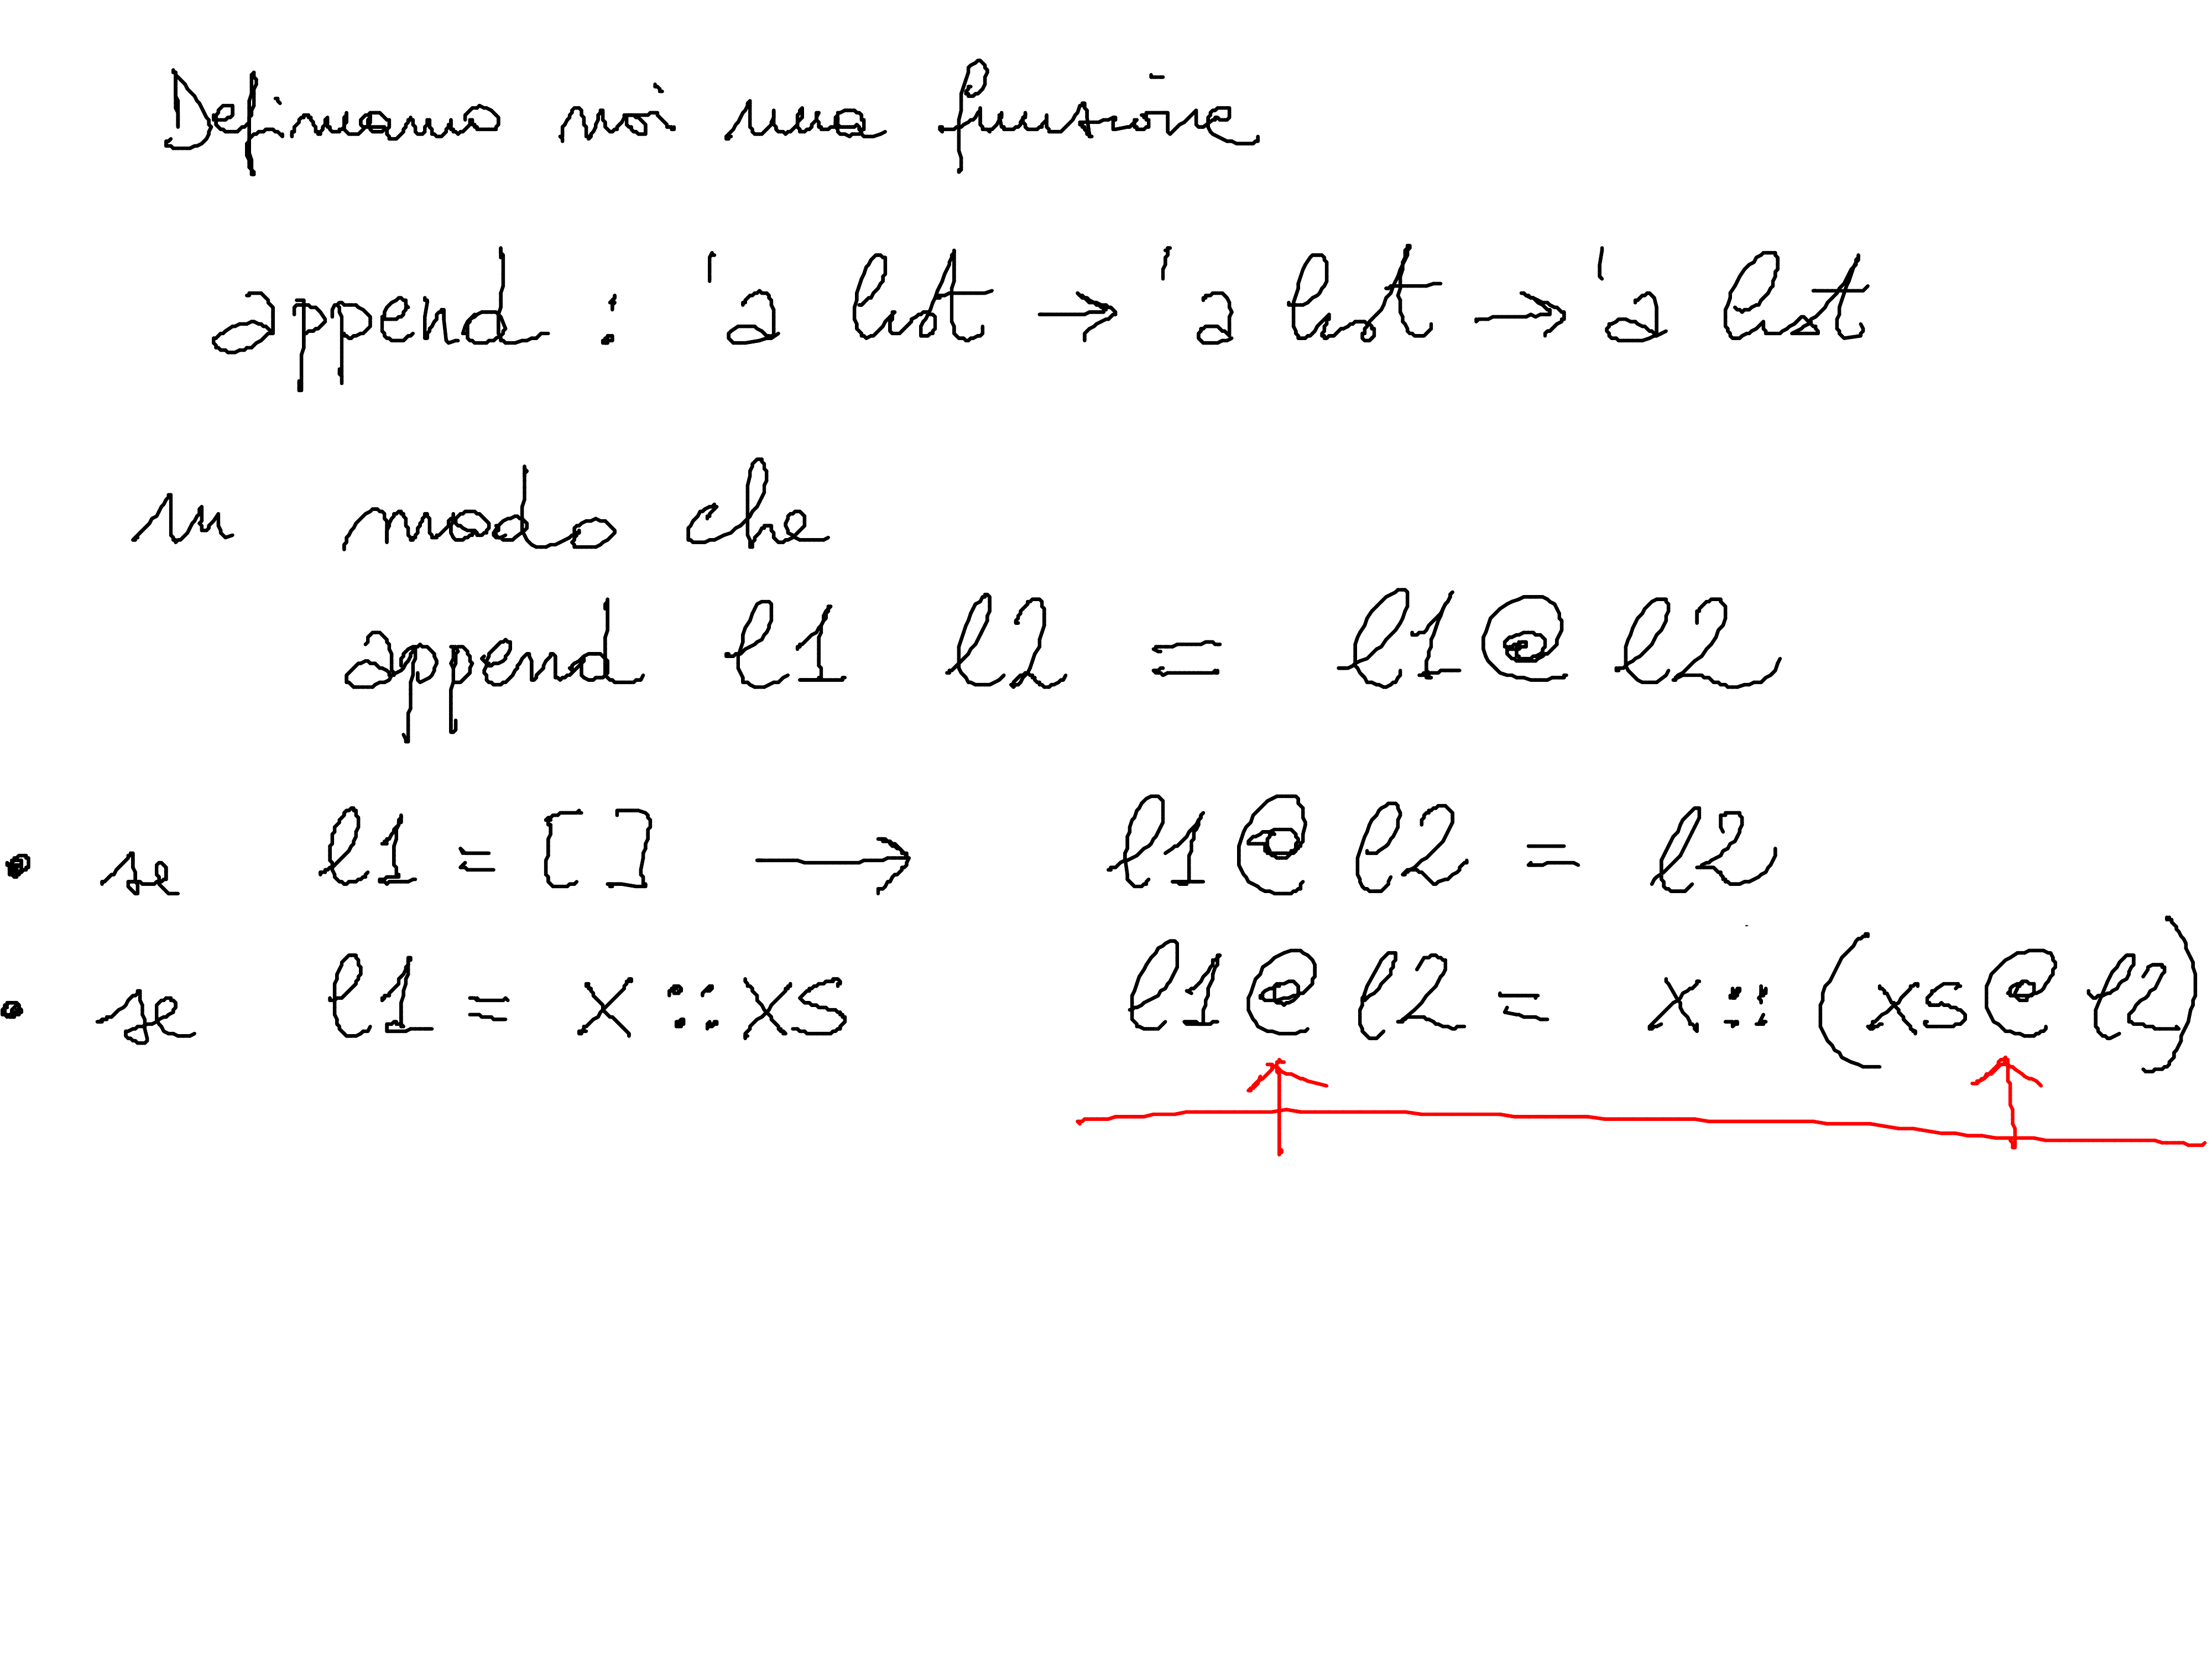 Definiamo noi una funzione
append : 'a list → 'a list → 'a list
in modo che
append l1 l2 = l1 @ l2
• se l1 = [ ] → l1 @ l2 = l2
• se l1 = x :: xs l1 @ l2 = x :: (xs @ l2)